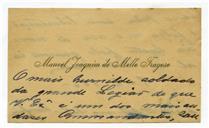 Manoel Joaquim de Mello Fragoso
O mais humilde soldado
da grande Legião de que
V. Ex.ª é um dos mais au-
dazes Commandantes,